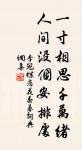 一寸相思千萬緒
人間沒個安排處
李冠蝶戀花春暮詞典
網集